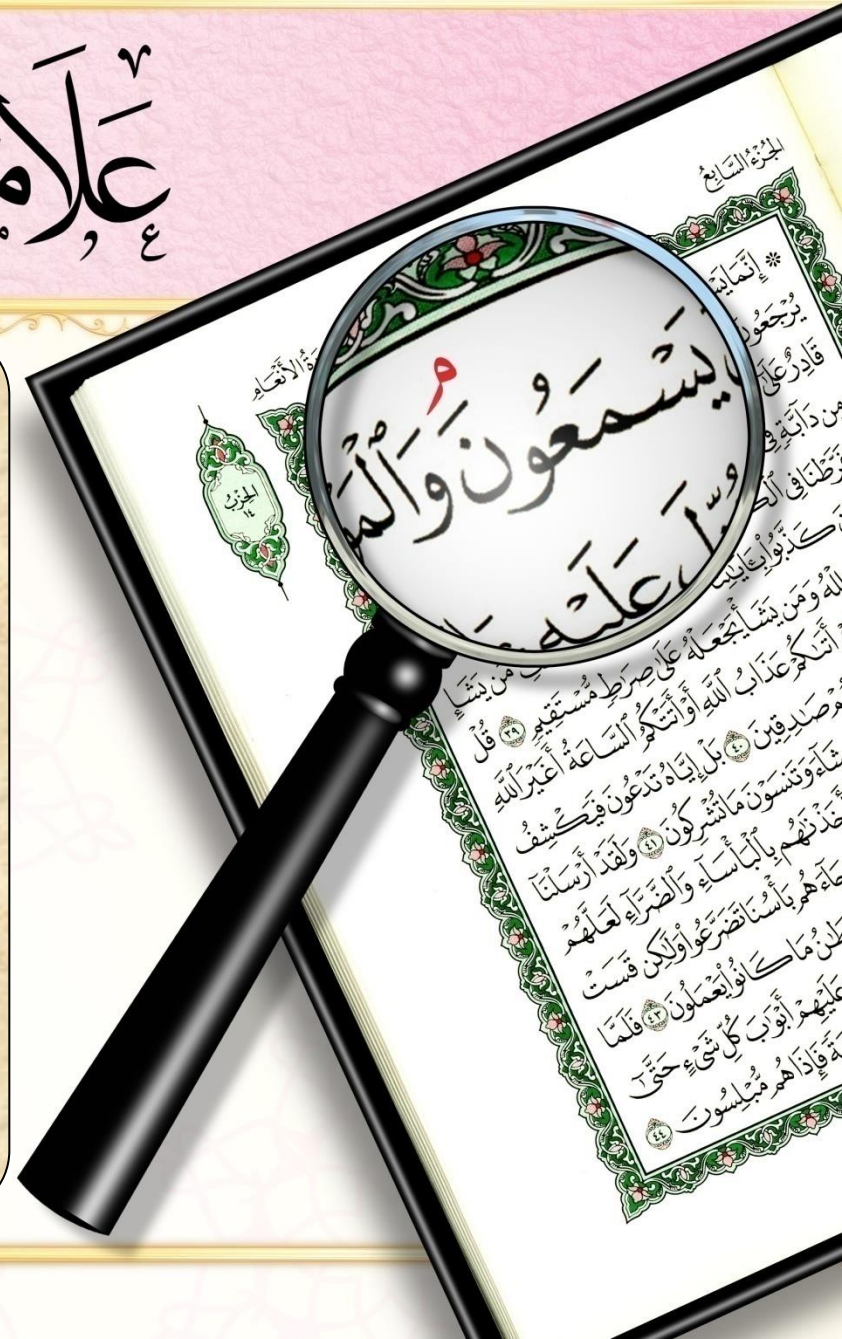 عَلَامـ
الجُزْءُ السَّابِعُ
الأَنْعَام
الحِزْبُ
١٤
يَسْمَعُونَ ۘ وَٱلْمَو
عَلَيْهِ
۞ إِنَّمَا يَسـ
يُرْجَعُونَ
قَادِرٌ عَلَىٰ
مِن دَآبَّةٍ فِى
فَرَّطْنَا فِى ٱلْكـ
كَذَّبُوا۟ بِـَٔايَـٰتِنَا
مَن يَشَإِ
ٱللَّهُ وَمَن يَشَأْ يَجْعَلْهُ عَلَىٰ صِرَٰطٍ مُّسْتَقِيمٍ ٣٩ قُلْ
أَتَىٰكُمْ عَذَابُ ٱللَّهِ أَوْ أَتَتْكُمُ ٱلسَّاعَةُ أَغَيْرَ ٱللَّهِ
صَـٰدِقِينَ ٤٠ بَلْ إِيَّاهُ تَدْعُونَ فَيَكْشِفُ
شَآءَ وَتَنسَوْنَ مَا تُشْرِكُونَ ٤١ وَلَقَدْ أَرْسَلْنَآ
فَأَخَذْنَـٰهُم بِٱلْبَأْسَآءِ وَٱلضَّرَّآءِ لَعَلَّهُمْ
جَآءَهُم بَأْسُنَا تَضَرَّعُوا۟ وَلَـٰكِن قَسَتْ
ـطَـٰنُ مَا كَانُوا۟ يَعْمَلُونَ ٤٣ فَلَمَّا
عَلَيْهِمْ أَبْوَٰبَ كُلِّ شَىْءٍ حَتَّىٰٓ
ـةً فَإِذَا هُم مُّبْلِسُونَ ٤٤